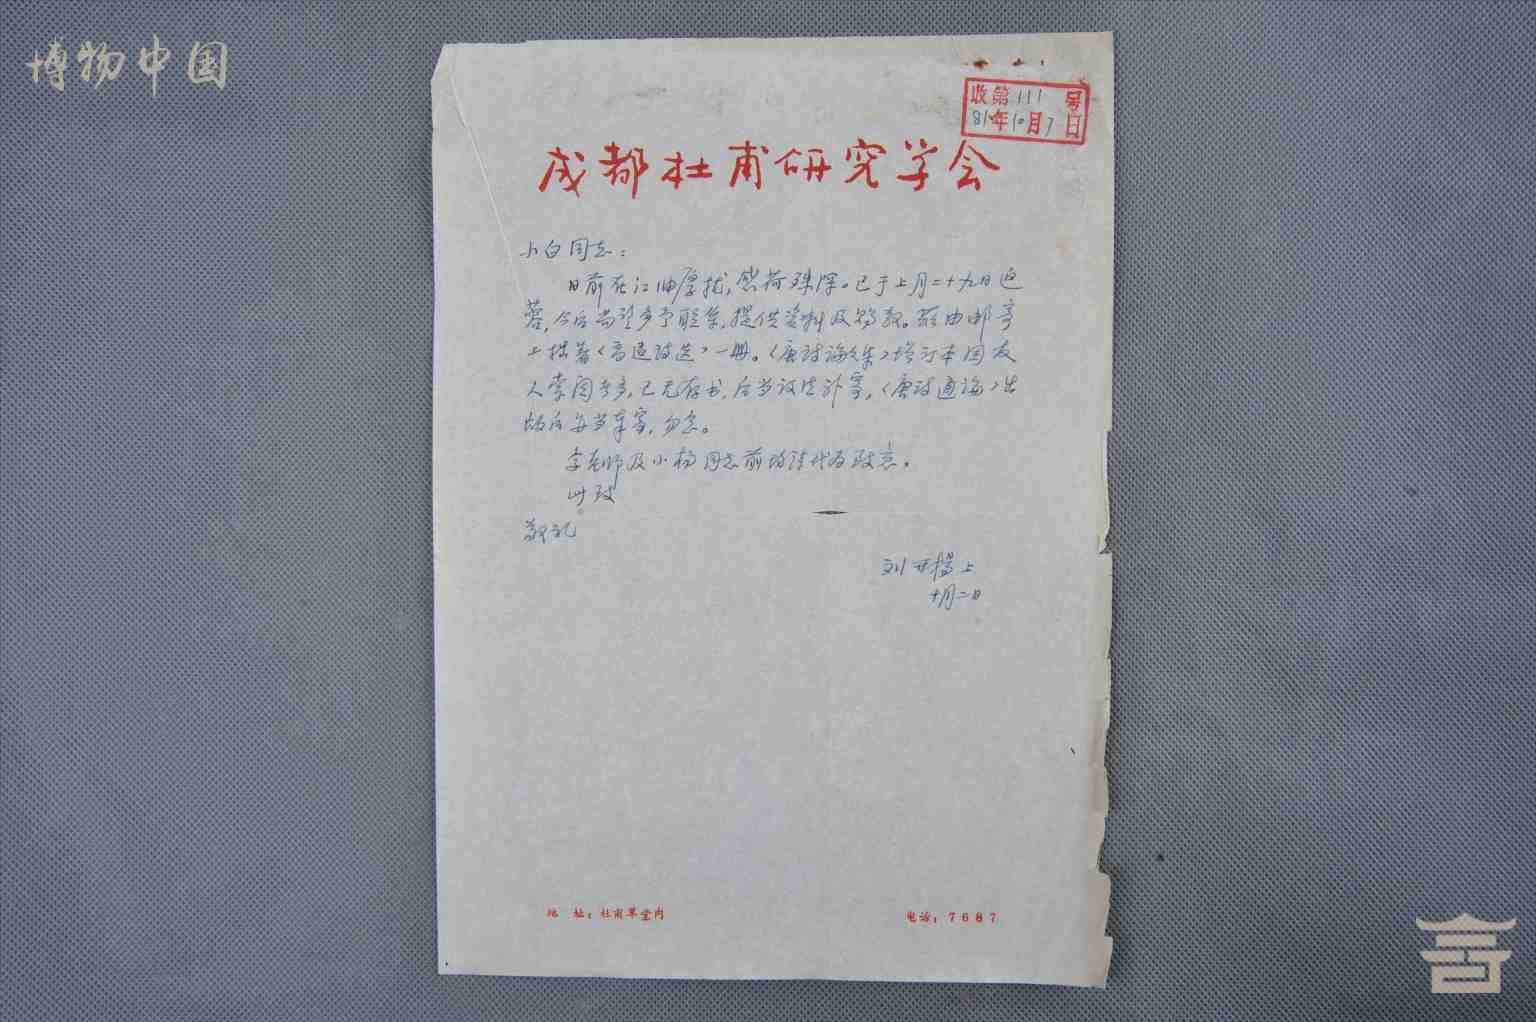 博物中国
收第111号
81年10月7日
成都杜甫研究学会
小白同志：
日前在江油厚扰，感荷殊深。已于上月二十九日返
蓉，今后尚望多予联系，提供资料及赐教。兹由邮寄
上拙著《高适诗选》一册。《唐诗论集》增订本因友
人索阅者多，已无存书，后当设法补寄，《唐诗通论》出
版后亦当奉寄，勿念。
李老师及小杨同志前均请代为致意。
此致
敬礼
刘开扬上
十月二日
地 址：杜甫草堂内
电话：7687